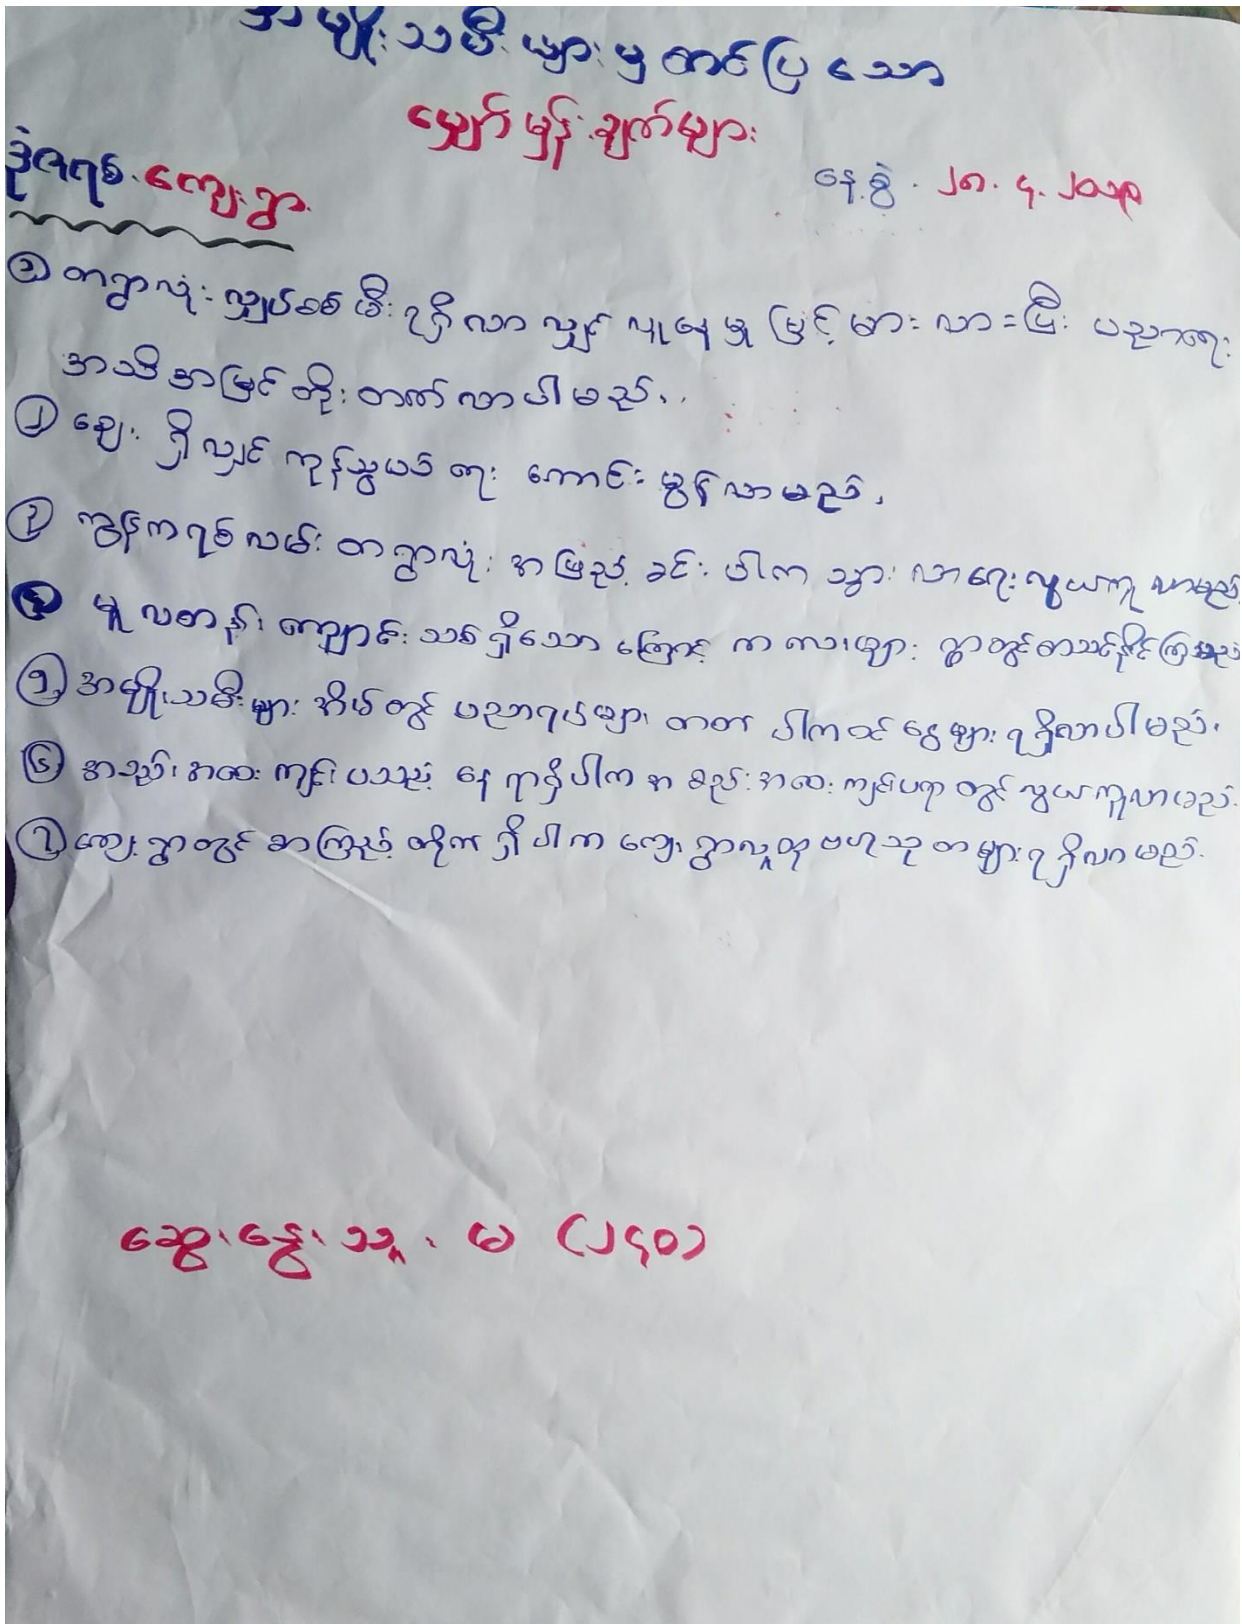 အမျိုးသမီးများမှ တင်ပြသော
မျှော်မှန်းချက်များ
ဒုံဇရစ်.ကျေးရွာ.
နေ့စွဲ. ၂၈.၄.၂၀၁၉
၁ တရွာလုံး လျှပ်စစ်မီး ရရှိလာလျှင် လူနေမှု မြင့်မားလာပြီး ပညာရေး
အသိအမြင်တိုးတက်လာပါမည်.
၂ ဈေး ရှိလျှင် ကုန်သွယ်ရေး ကောင်းမွန်လာမည်.
၃ ကွန်ကရစ်လမ်း တရွာလုံး အပြည့် ခင်းပါက သွားလာရေးလွယ်ကူလာမည်
၄ မူလတန်း ကျောင်းသစ်ရှိသောကြောင့် ကလေးများ ရွာတွင်စာသင်နိုင်ကြမည်
၅ အမျိုးသမီးများ အိမ်တွင် ပညာရပ်များ တတ်ပါက ဝင်ငွေများ ရရှိလာပါမည်.
၆ အစည်းအဝေး ကျင်းပသည့် နေရာရှိပါက အစည်းအဝေးကျင်းပရာတွင် လွယ်ကူလာမည်.
၇ ကျေးရွာတွင် စာကြည့်တိုက်ရှိပါက ကျေးရွာလူထု ဗဟုသုတများရရှိလာမည်.
ဆွေးနွေးသူ. မ (၂၄၀)